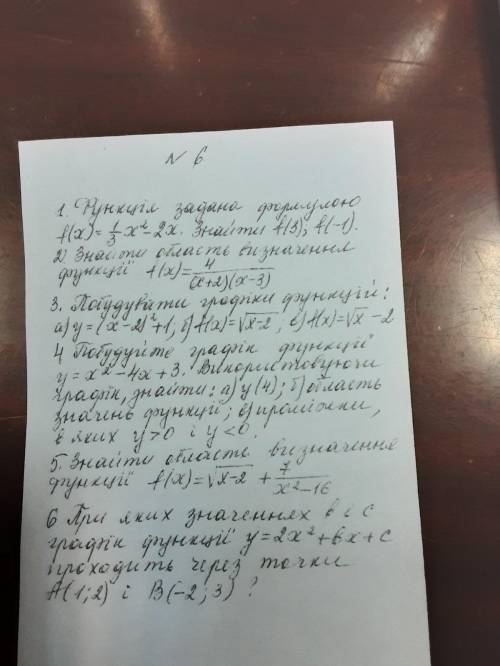 N 6
1. Функція задана формулою
f(x)=1/3 x²-2x. Знайти f(3), f(-1).
2) Знайти область визначення
функції f(x)=4/((x+2)(x-3))
3. Побудувати графіки функцій:
а) y=(x-2)²+1; б) f(x)=√x-2; в) f(x)=√x -2
4 Побудуйте графік функції
y=x²-4x+3. Використовуючи
графік, знайти: а) y(4); б) область
значень функції; в) проміжки,
в яких y>0 і y<0.
5. Знайти область визначення
функції f(x)=√x-2 + 7/(x²-16)
6 При яких значеннях в і с
графік функції y=2x²+вx+c
проходить через точки
A(1;2) і B(-2;3)?